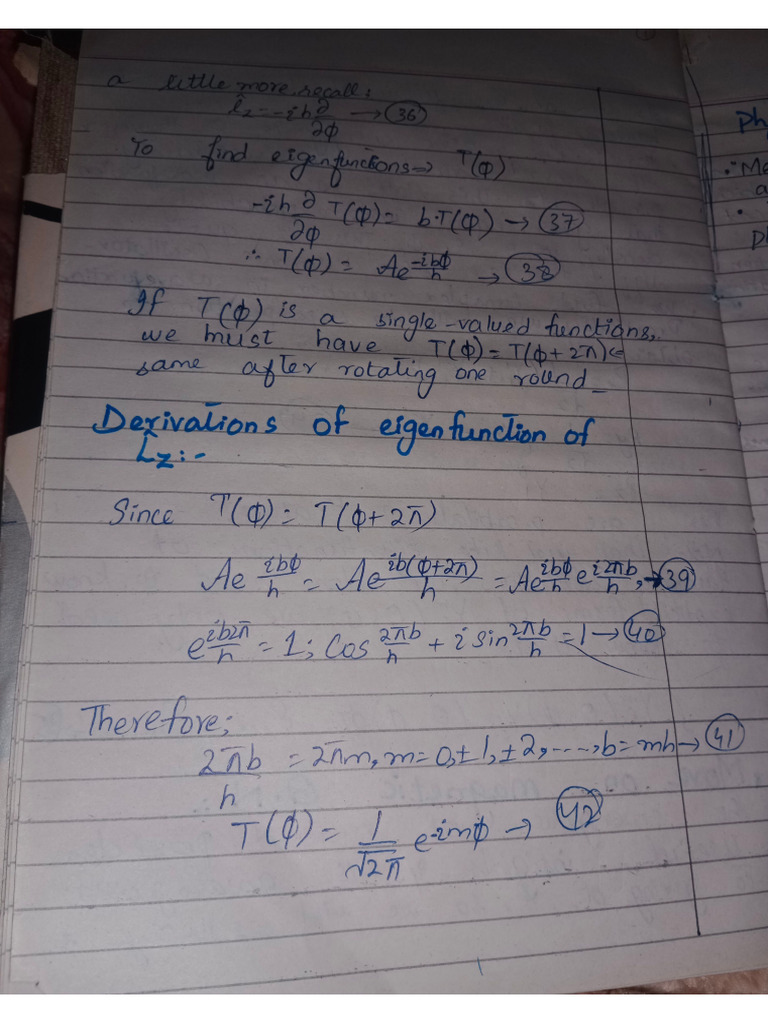 a little more recall:
L̂z = -ih ∂/∂φ → (36)
To find eigenfunctions → T(φ)
-ih ∂/∂φ T(φ) = b·T(φ) → (37)
∴ T(φ) = Ae^(-ibφ/h) → (38)
If T(φ) is a single-valued functions,
we must have T(φ) = T(φ+2π) ←
same after rotating one round
Derivations of eigenfunction of
L̂z:-
Since T(φ) = T(φ+2π)
Ae^(ibφ/h) = Ae^(ib(φ+2π)/h) = Ae^(ibφ/h) e^(i2πb/h), → (39)
e^(ib2π/h) = 1; Cos 2πb/h + i sin 2πb/h = 1 → (40)
Therefore;
2πb/h = 2πm, m = 0, ±1, ±2, ----, b = mh → (41)
T(φ) = 1/√2π e^(-imφ) → (42)
Ph
∵ Me
a